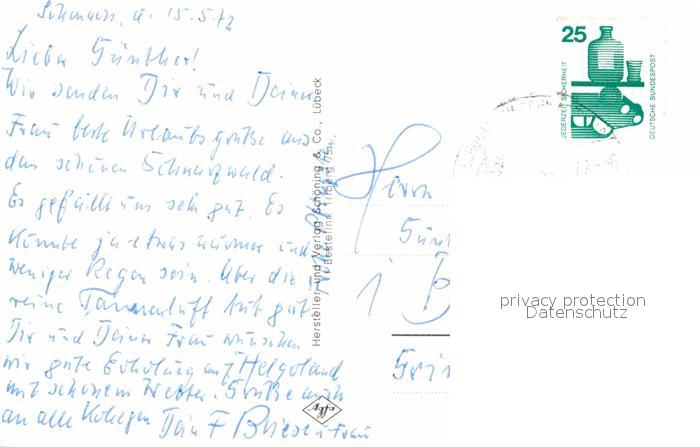 15.5.72
Lieber Günther!
Wir senden Dir und Deiner
Frau beste Urlaubsgrüße aus
dem schönen Schwarzwald.
Es gefällt uns sehr gut. Es
könnte ja etwas wärmer und
weniger Regen sein. Aber die
reine Tannenluft tut gut
Dir und Deiner Frau wünschen
wir gute Erholung auf Helgoland
mit schönem Wetter. Grüße auch
an alle Kollegen Dein F Briese u Frau
Hersteller und Verlag Schöning & Co., Lübeck
Bestellnr. Triberg 75
Agfa
25
JEDERZEIT SICHERHEIT
DEUTSCHE BUNDESPOST
Herrn
Günt
1 B
privacy protection
Datenschutz